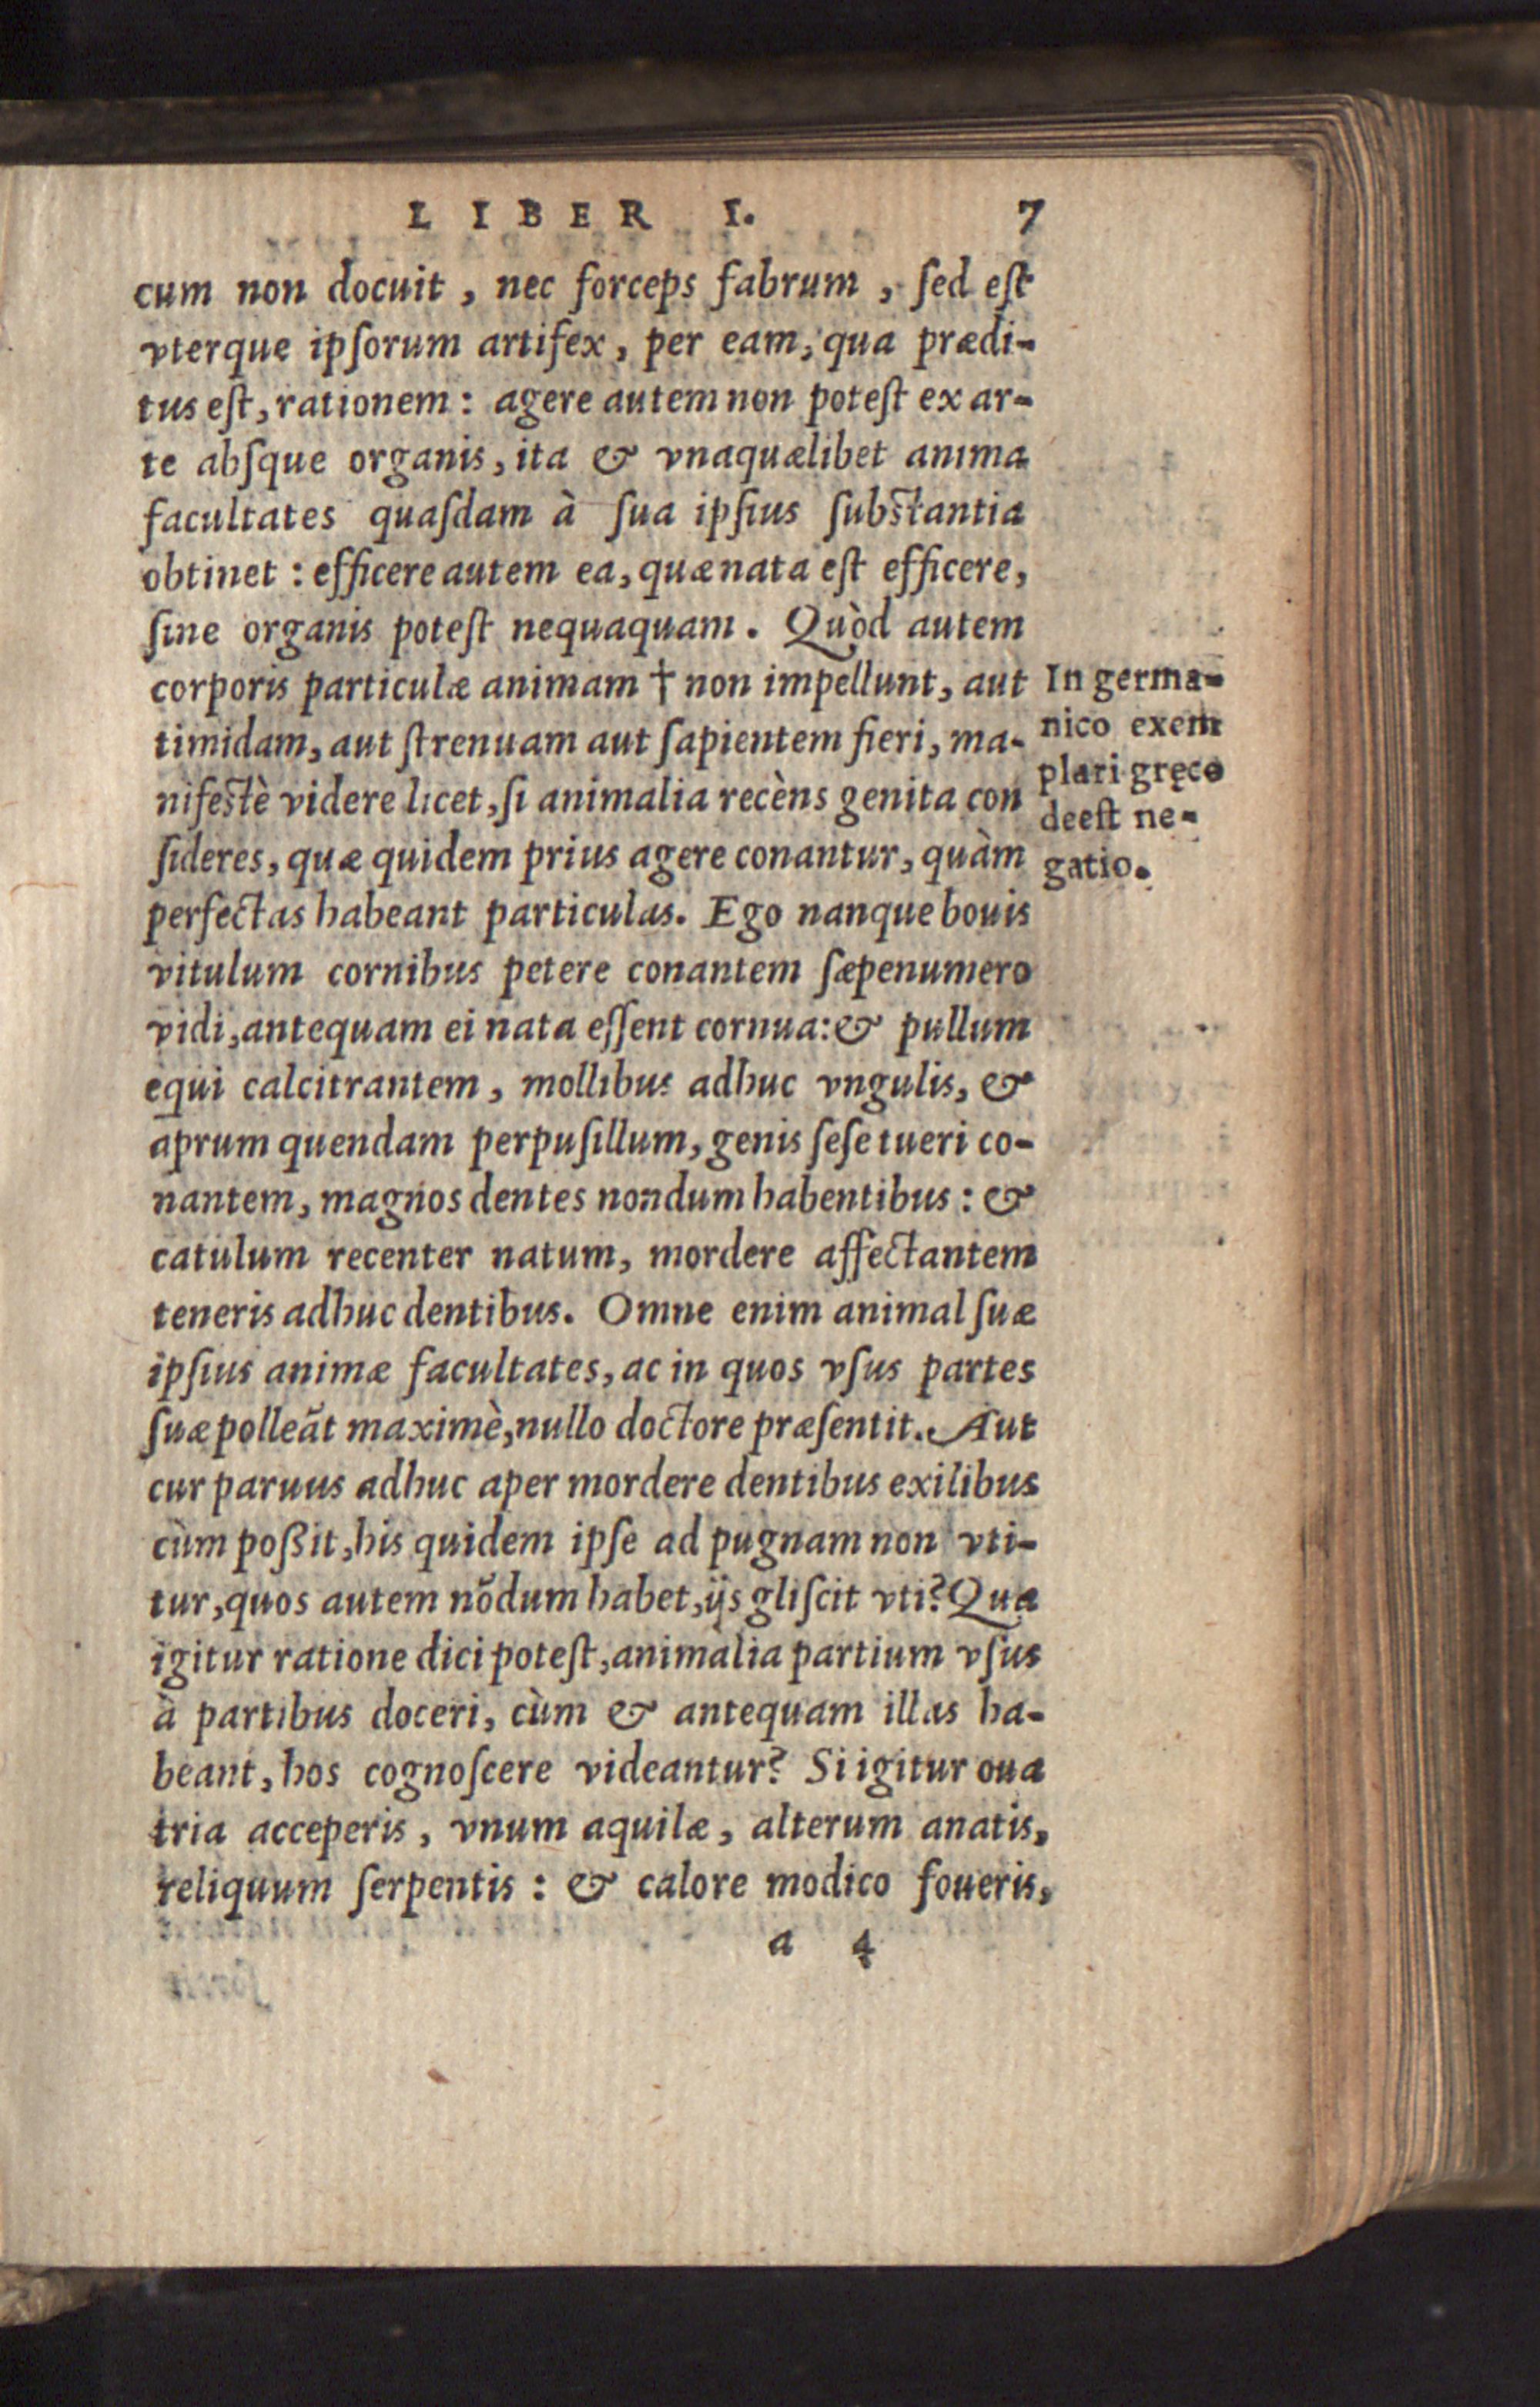 LIBER I. 7
cum non docuit, nec forceps fabrum, sed est
vterque ipsorum artifex, per eam, qua prædi-
tus est, rationem: agere autem non potest ex ar-
te absque organis, ita & vnaquælibet anima
facultates quasdam à sua ipsius substantia
obtinet: efficere autem ea, quæ nata est efficere,
sine organis potest nequaquam. Quòd autem
corporis particulæ animam † non impellunt, aut
timidam, aut strenuam aut sapientem fieri, ma-
nifestè videre licet, si animalia recèns genita con
sideres, quæ quidem prius agere conantur, quàm
perfectas habeant particulas. Ego nanque bouis
vitulum cornibus petere conantem sæpenumero
vidi, antequam ei nata essent cornua: & pullum
equi calcitrantem, mollibus adhuc vngulis, &
aprum quendam perpusillum, genis sese tueri co-
nantem, magnos dentes nondum habentibus: &
catulum recenter natum, mordere affectantem
teneris adhuc dentibus. Omne enim animal suæ
ipsius animæ facultates, ac in quos vsus partes
suæ polleãt maximè, nullo doctore præsentit. Aut
cur paruus adhuc aper mordere dentibus exilibus
cùm poßit, his quidem ipse ad pugnam non vti-
tur, quos autem nõdum habet, ijs gliscit vti? Qua
igitur ratione dici potest, animalia partium vsus
à partibus doceri, cùm & antequam illas ha-
beant, hos cognoscere videantur? Si igitur oua
tria acceperis, vnum aquilæ, alterum anatis,
reliquum serpentis: & calore modico foueris,
a 4
In germa-
nico exem
plari gręco
deest ne-
gatio.